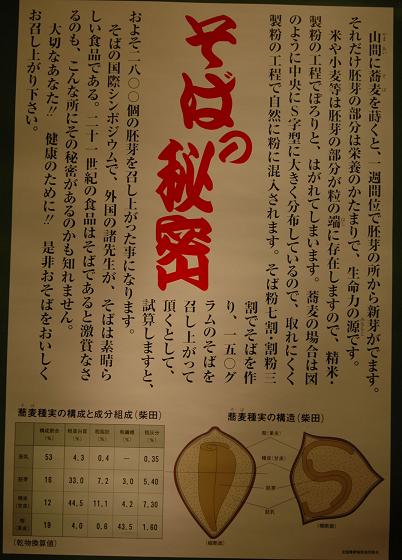 そばの秘密
山間に蕎麦を蒔くと、一週間位で胚芽の所から新芽がでます。
それだけ胚芽の部分は栄養のかたまりで、生命力の源です。
米や小麦等は胚芽の部分が粒の端に存在しますので、精米・
製粉の工程でぽろりと、はがれてしまいます。蕎麦の場合は図
のように中央にS字型に大きく分布しているので、取れにくく
製粉の工程で自然に粉に混入されます。そば粉七割・割粉三
割でそばを作
り、一五〇グ
ラムのそばを
召し上がって
頂くとして、
試算しますと、
およそ二八〇〇個の胚芽を召し上がった事になります。
そばの国際シンポジウムで、外国の諸先生が、そばは素晴ら
しい食品である。二十一世紀の食品はそばであると激賞なさ
るのも、こんな所にその秘密があるのかも知れません。
大切なあなた!! 健康のために!! 是非おそばをおいしく
お召し上がり下さい。
蕎麦種実の構成と成分組成(柴田)
構成割合(%) 粗蛋白質(%) 粗脂肪(%) 粗繊維(%) 粗灰分(%)
胚乳 53 4.3 0.4 — 0.35
胚芽 16 33.0 7.2 3.0 5.40
種皮(甘皮) 12 44.5 11.1 4.2 7.30
殻(果皮) 19 4.0 0.6 43.5 1.60
(乾物換算値)
蕎麦種実の構造(柴田)
殻(果皮)
種皮(甘皮)
胚芽
胚乳
(縦断面)
(横断面)